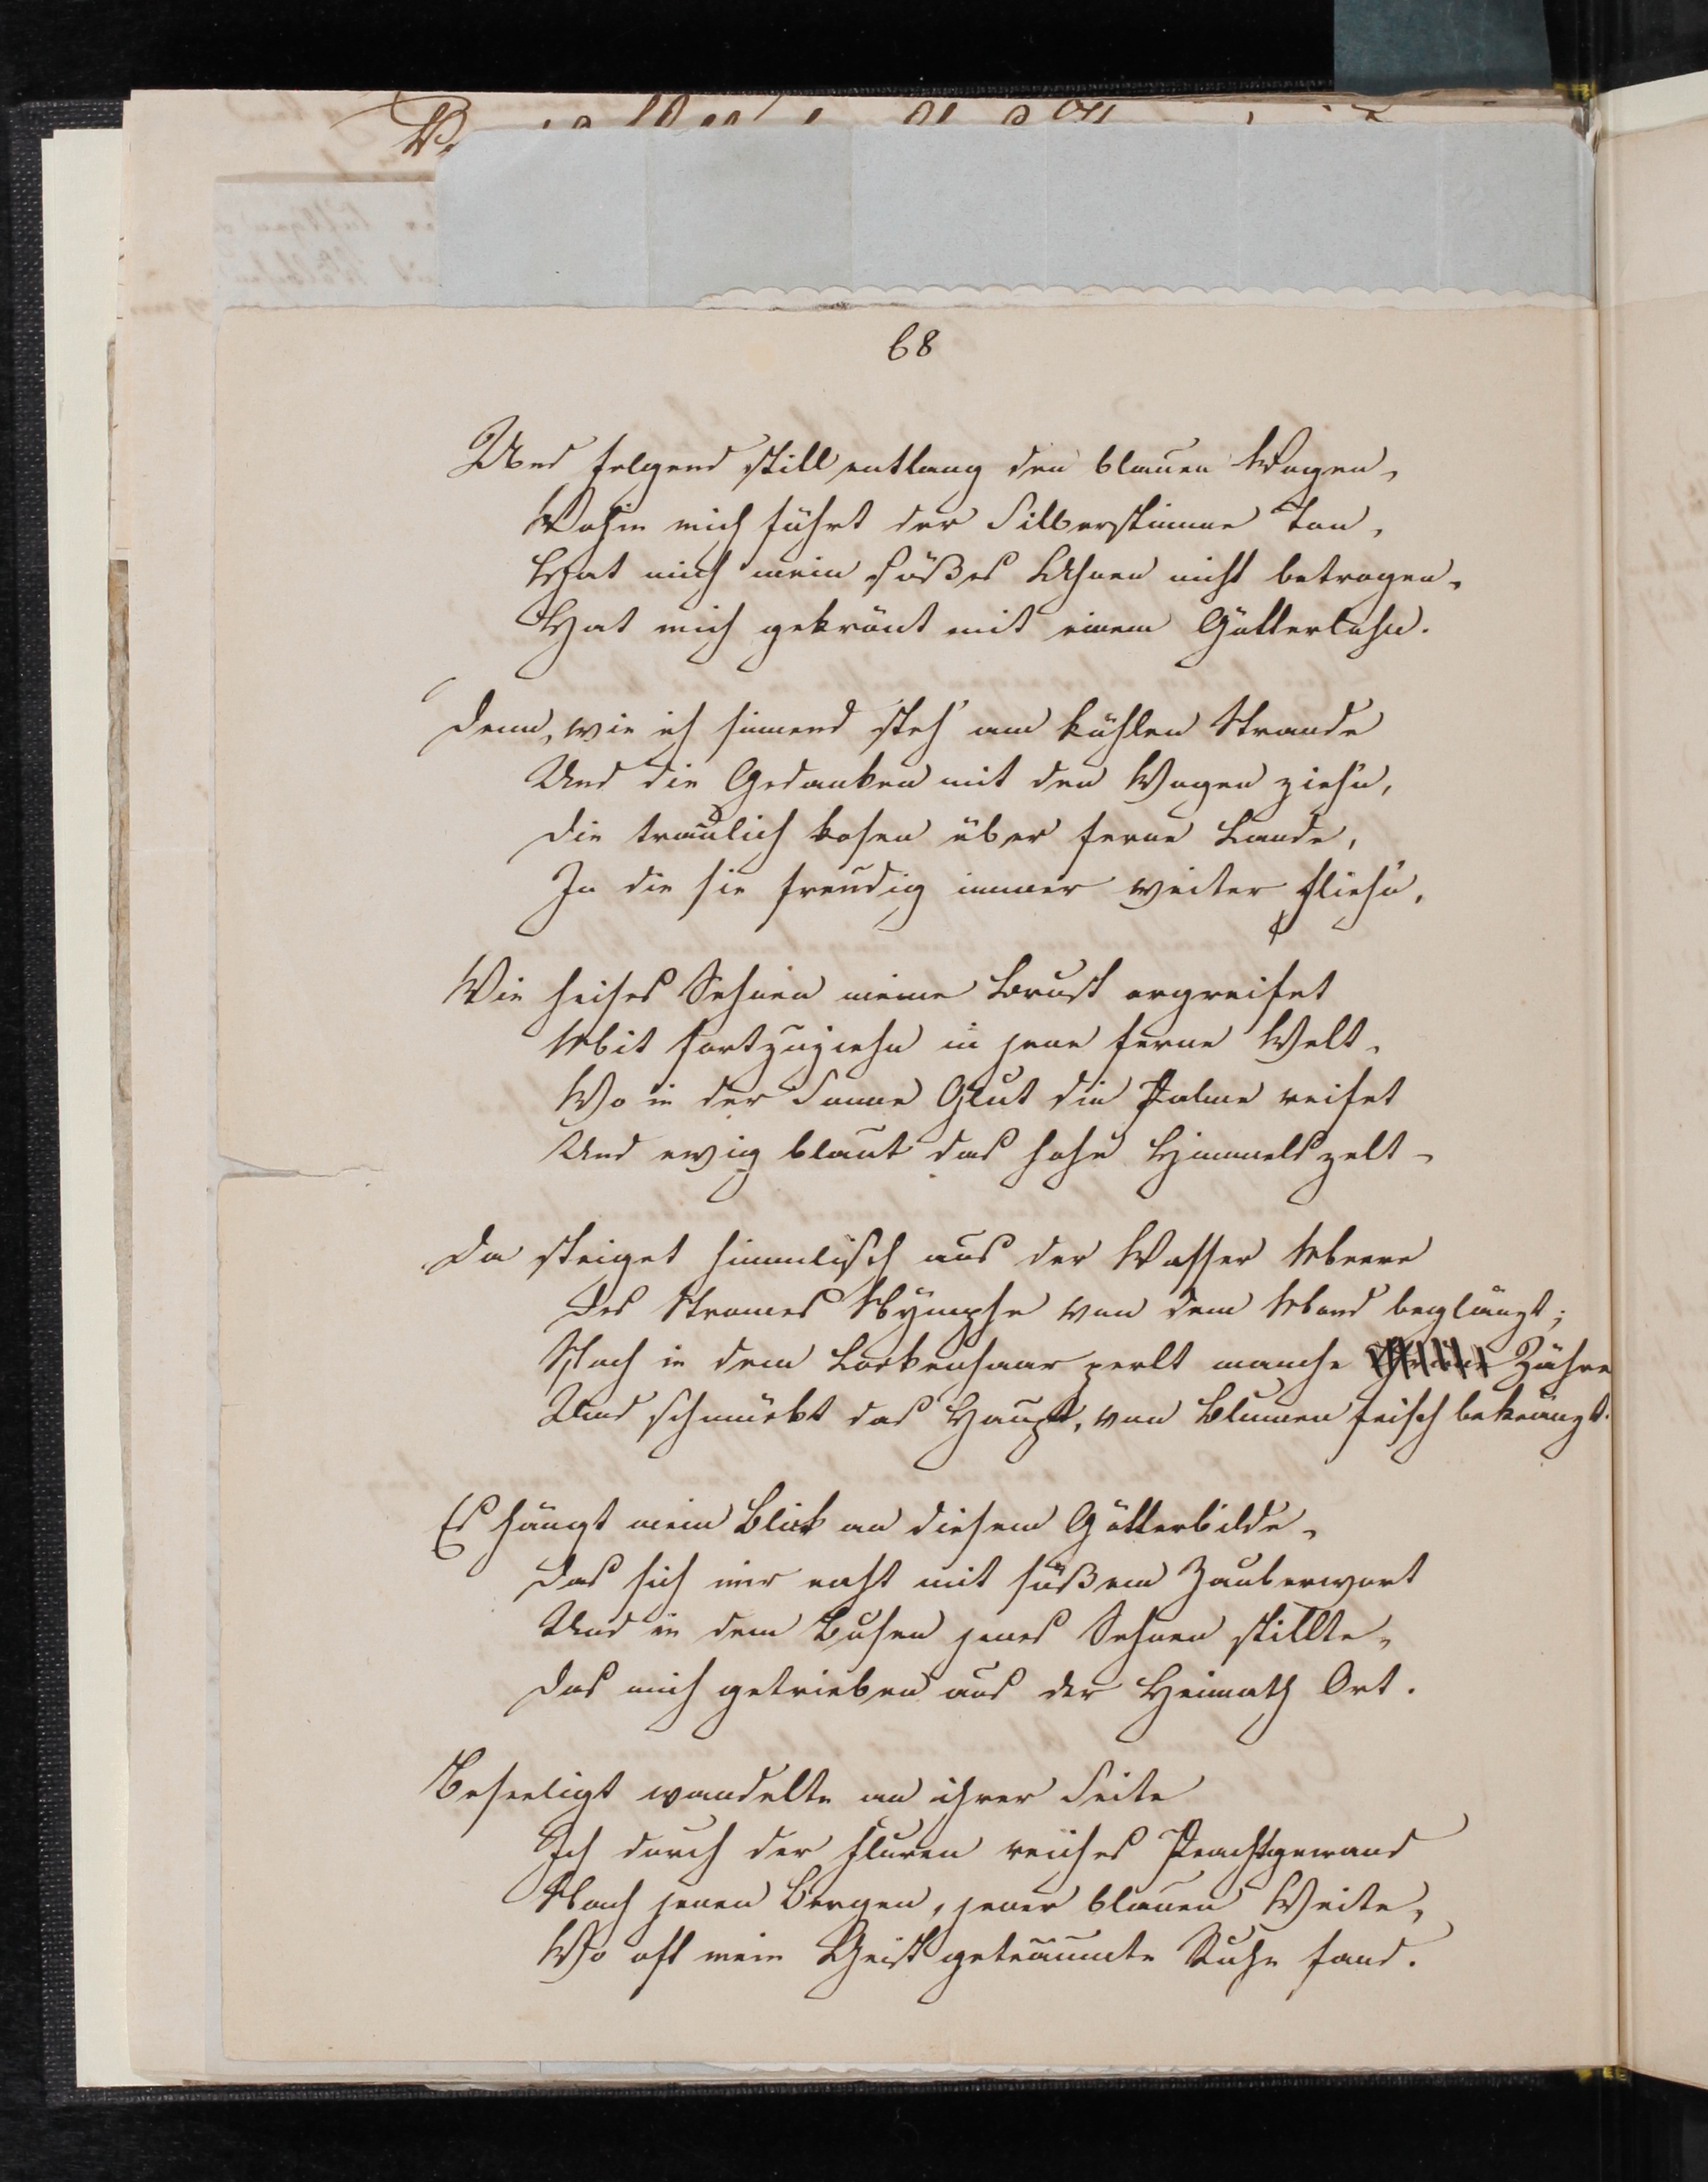 68
Und folgend still entlang den blauen Wogen,
Wohin mich führt der Silberstimme Ton,
Hat mich mein süßes Ahnen nicht betrogen,
Hat mich gekrönt mit einem Götterlohn.
Denn, wie ich sinnend steh' am kühlen Strande
Und die Gedanken mit den Wogen ziehn,
Die traulich kosen über ferne Lande,
In die sie freudig immer weiter fliehn,
Wie heises Sehnen meine Brust ergreifet
Mit fortzuziehn in jene ferne Welt,
Wo in der Sonne Glut die Palme reifet
Und ewig blaut das hohe Himmelszelt –
Da steiget himmlisch aus der Wasser Meere
Des Stromes Nymphe von dem Mond beglänzt;
Noch in dem Lockenhaar perlt manche Zähre
Und schmückt das Haupt, von Blumen frisch bekränzt.
Es hängt mein Blick an diesem Götterbilde,
Das sich mir naht mit süßem Zauberwort
Und in dem Busen jenes Sehnen stillte,
Das mich getrieben aus der Heimath Ort.
Beseeligt wandelte an ihrer Seite
Ich durch der Fluren reiches Prachtgewand
Nach jenen Bergen, jener blauen Weite,
Wo oft mein Geist geträumte Ruhe fand.